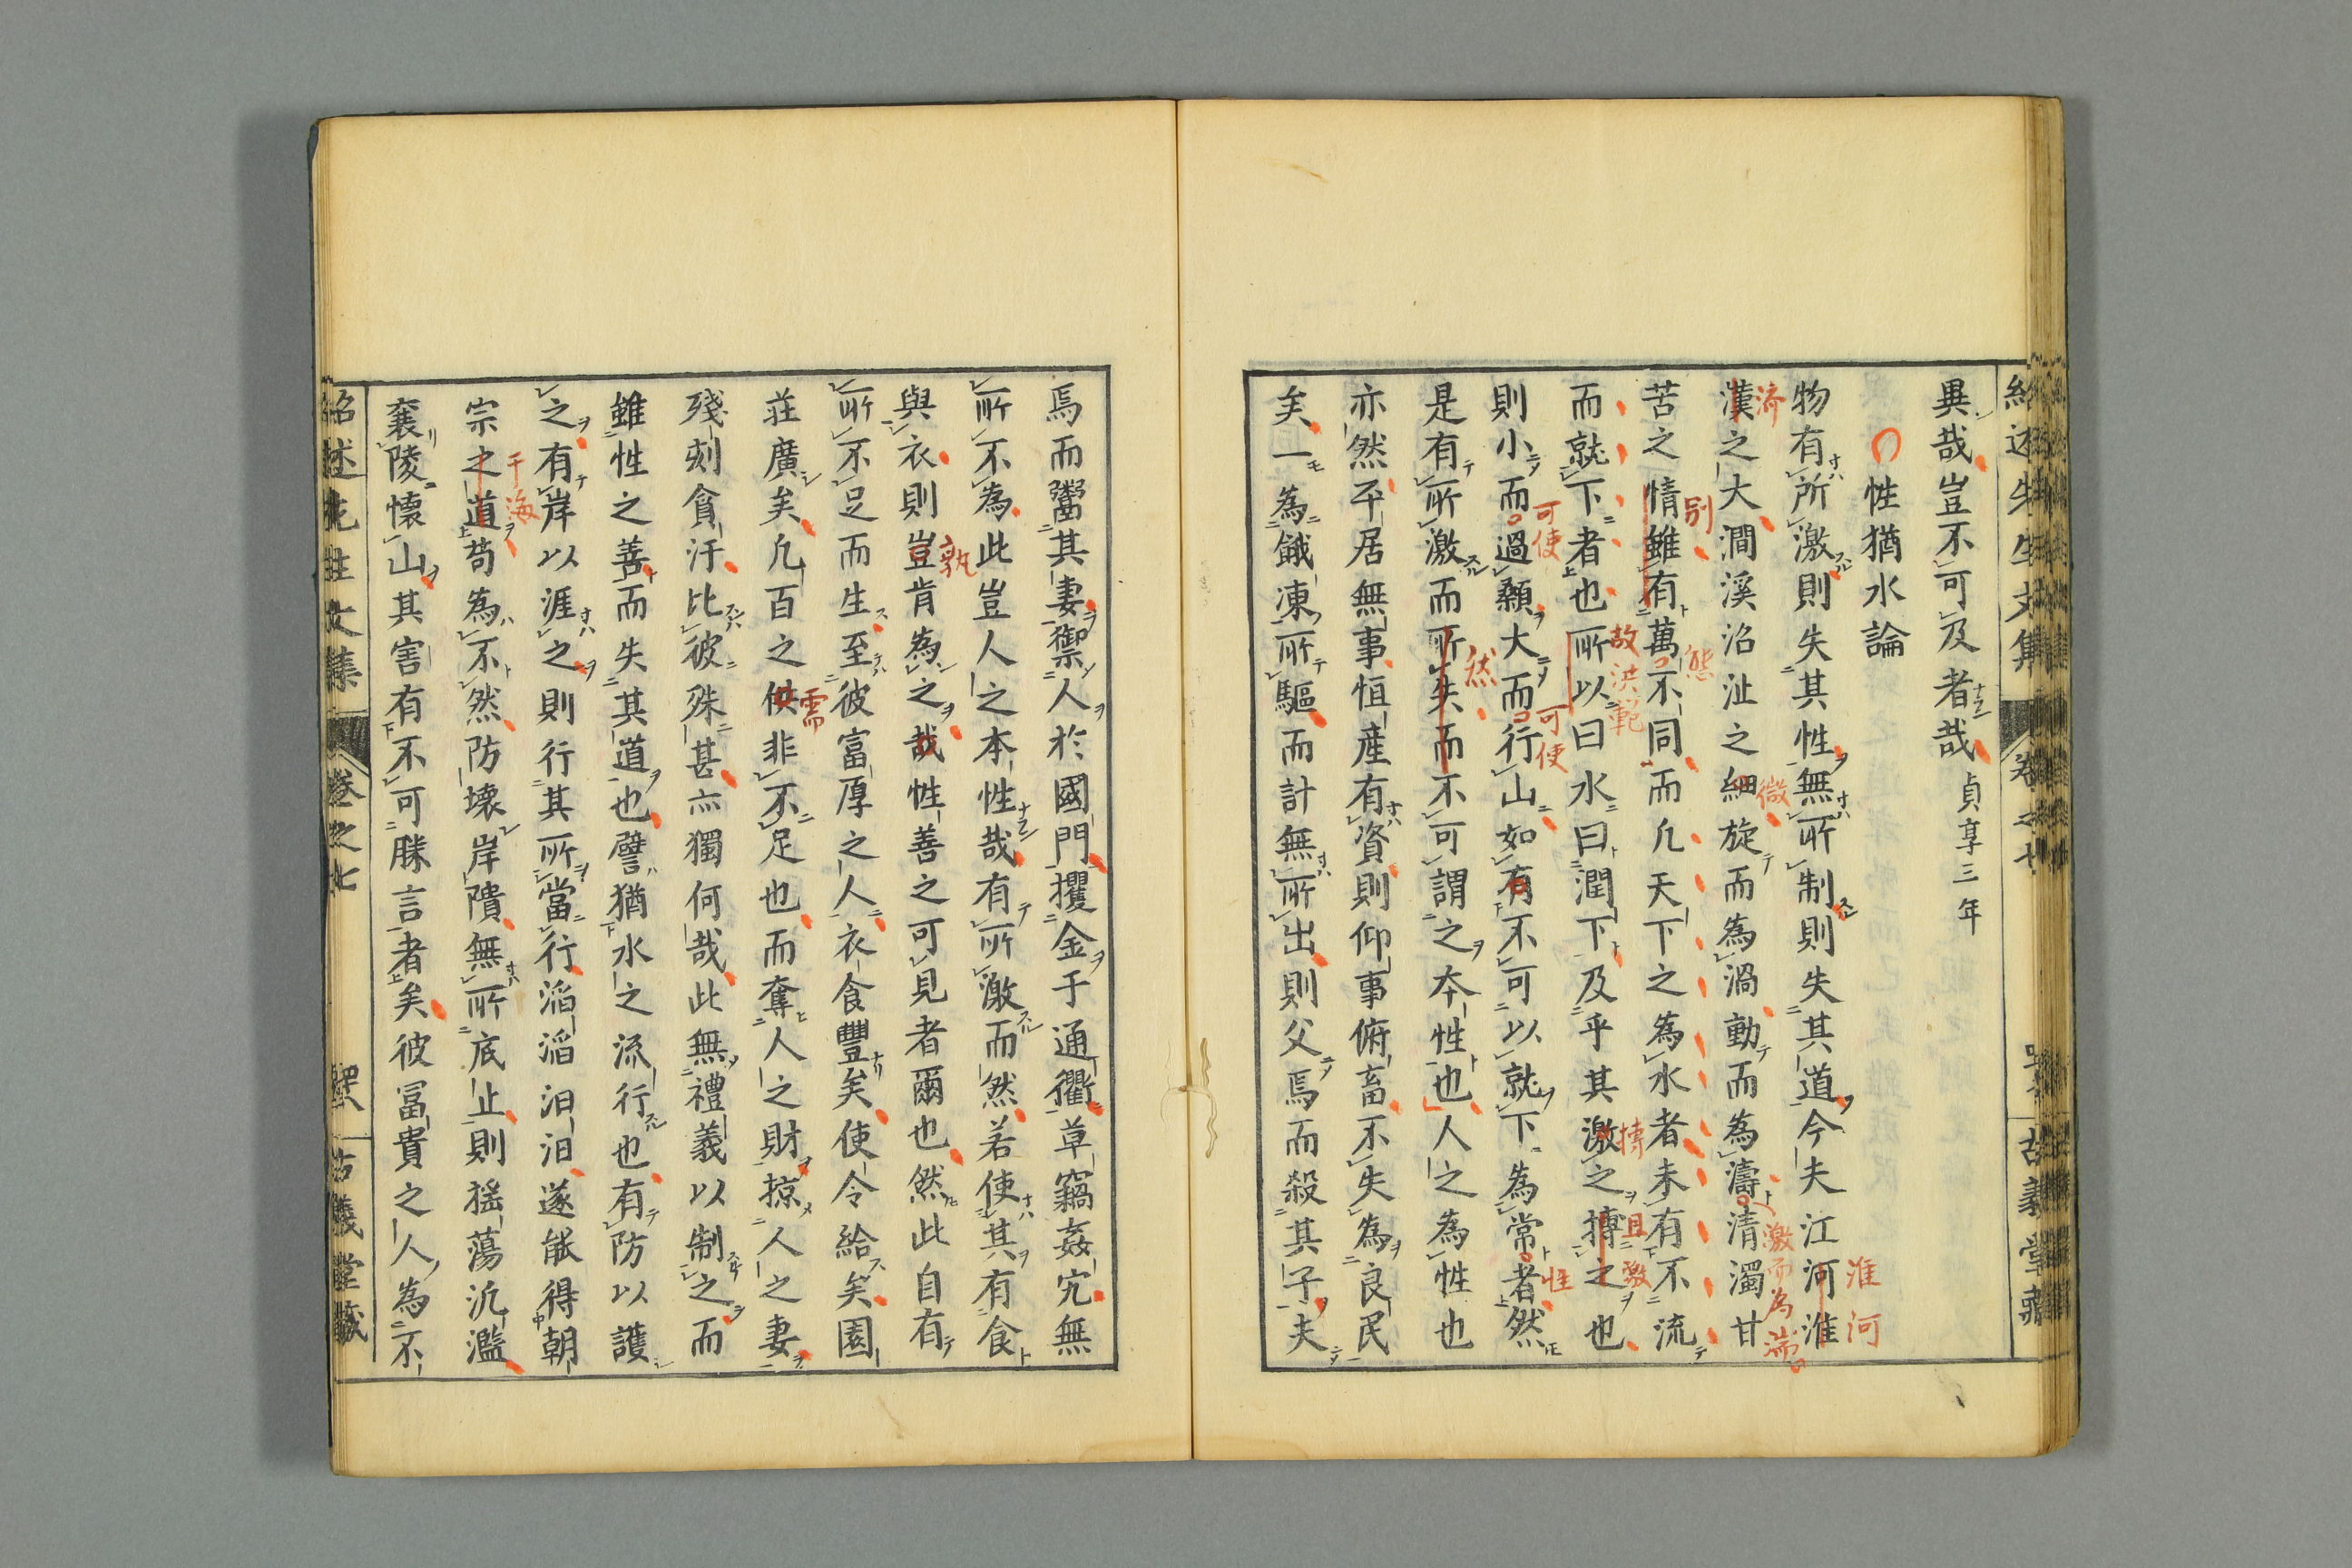 異哉豈不可及者哉貞享三年
性猶水論
物有所激則失其性無所制則失其道今夫江河淮
漢之大澗溪沼沚之細旋而為渦動而為濤清濁甘
苦之情雖有萬不同而凡天下之為水者未有不流
而就下者也所以曰水曰潤下及乎其激之搏之也
則小而過顙大而行山如有不可以就下為常者然
是有所激而所失而不可謂之本性也人之為性也
亦然平居無事恒産有資則仰事俯畜不失為良民
矣一為餓凍所驅而計無所出則父焉而殺其子夫
焉而鬻其妻禦人於國門攫金于通衢草竊姦宄無
所不為此豈人之本性哉有所激而然若使其有食
與衣則豈肯為之哉性善之可見者爾也然此自有
所不足而生至彼富厚之人衣食豐矣使令給矣園
荘廣矣凡百之供非不足也而奪人之財掠人之妻
殘刻貪汙比彼殊甚亦獨何哉此無禮義以制之而
雖性之善而失其道也譬猶水之流行也有防以護
之有岸以涯之則行其所當行滔滔汩汩遂能得朝
宗之道苟為不然防壊岸隤無所底止則揺蕩汎濫
襄陵懷山其害有不可勝言者矣彼冨貴之人為不
紹述先生文集 卷之七 古義堂藏
済
微
激而為湍
淮河
別
態
故洪範
搏
且激
可使
可使
惟
然
孰
需
于海